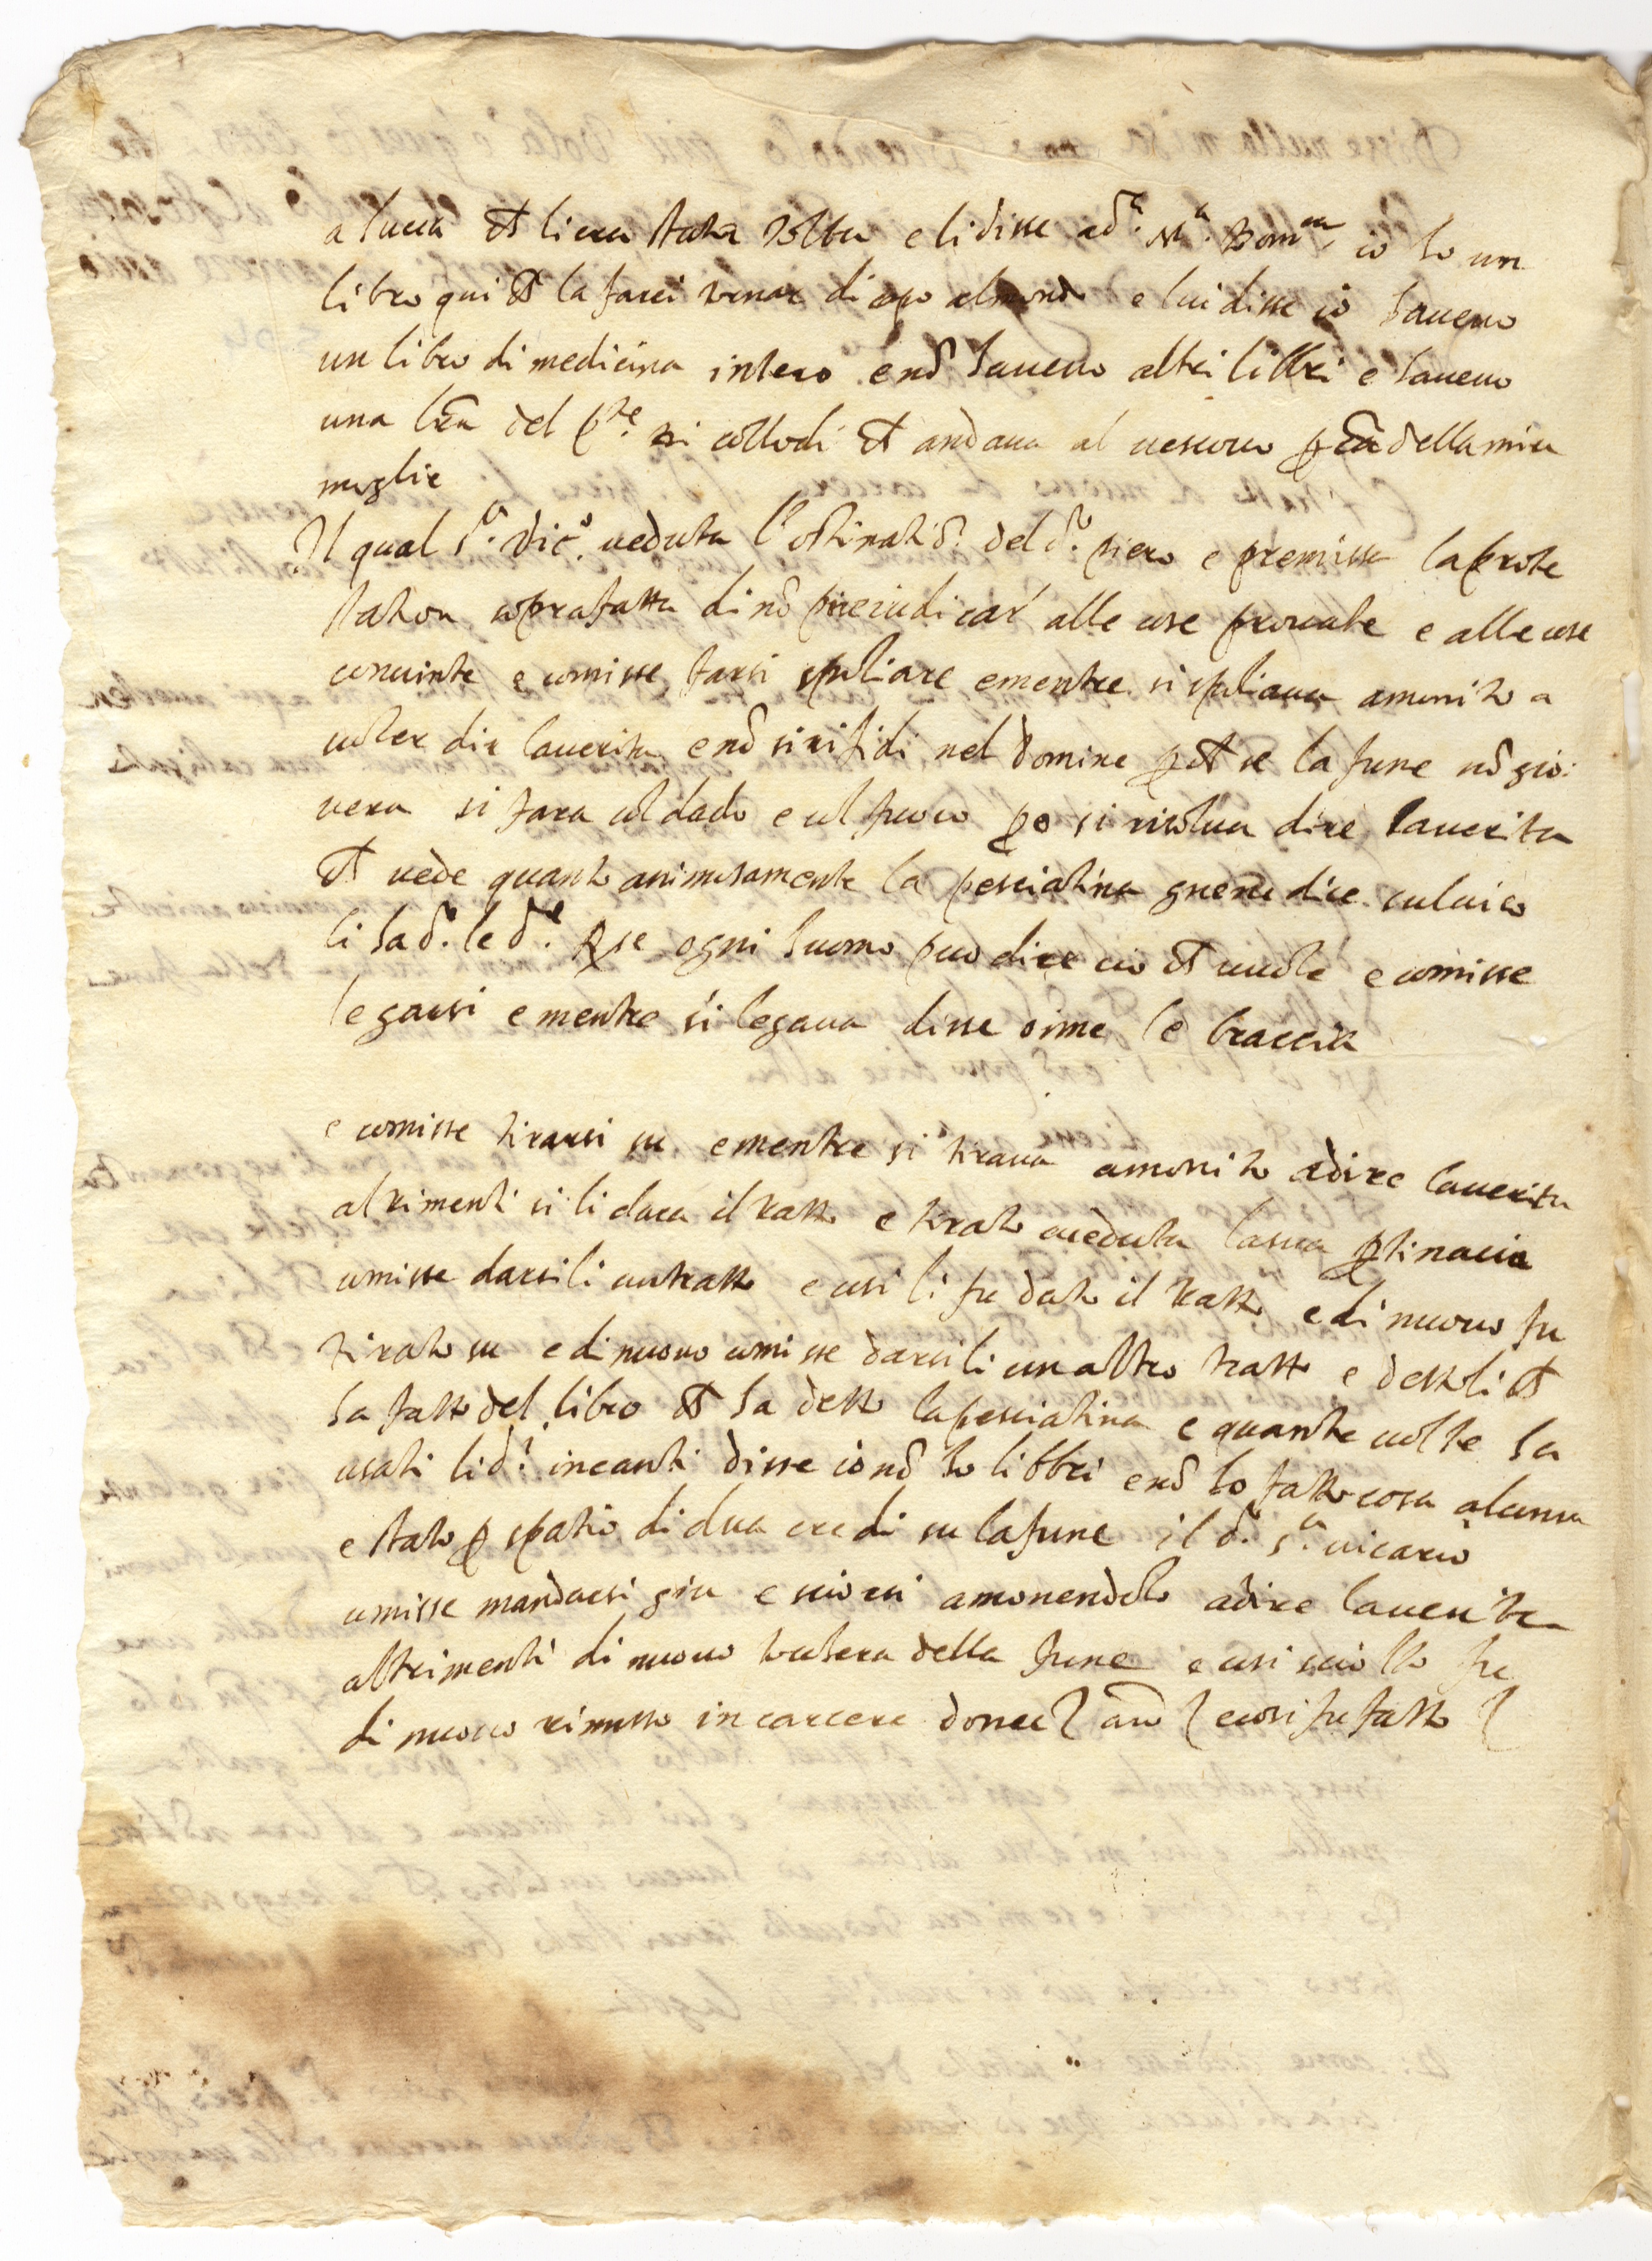 a lucca ch li era stata tolta e li disse a d.ª M.ª Dom.ca io ho un
libro qui ch la farei venar di capo al mondo e lui disse io haveuo
un libro di medicina intero e nõ haueuo altri libbri e haueuo
una lr̃a del p.re di collodi ch andaua al uescouo p cã della mia
moglie
Il qual s.r Vic.o ueduta l'ostinatiõ. del d.o piero e premissa la prote
station soprafatta di nõ preiudicar alle cose prouate e alle cose
conuinte e comisse farsi spoliare e mentre si spoliaua amonito a
uoler dir la uerita e nõ si rifidi nel domine p ch se la fune nõ gio:
uera si fara col dado e col fuoco po si risolua dire la uerita
ch uede quanto animosamente la pesciatina gnene dice sul uiso
li ha d.o le d.e Rse ogni huomo puo dire cio ch uuole e comisse
legarsi e mentre si legaua disse oime le braccia
e comisse tirarsi su e mentre si tiraua amonito a dire la uerita
altrimenti si li dara il tratto e tirato ueduta la sua ptinacia
comisse darsili un tratto e cosi li fu dato il tratto e di nuouo fu
tirato su e di nuouo comisse darsili un altro tratto e dettoli ch
ha fatto del libro ch ha detto la pesciatina e quante uolte ha
usati li d.i incanti disse io nõ ho libbri e nõ ho fatto cosa alcuna
e stato p spatio di dua credi su la fune il d.o s.r uicario
comisse mandarsi giu e sciorsi amonendolo a dire la uerita
altrimenti di nuouo tochera della fune e cosi sciolto fu
di nuouo rimesso in carcere donec e cosi fu fatto